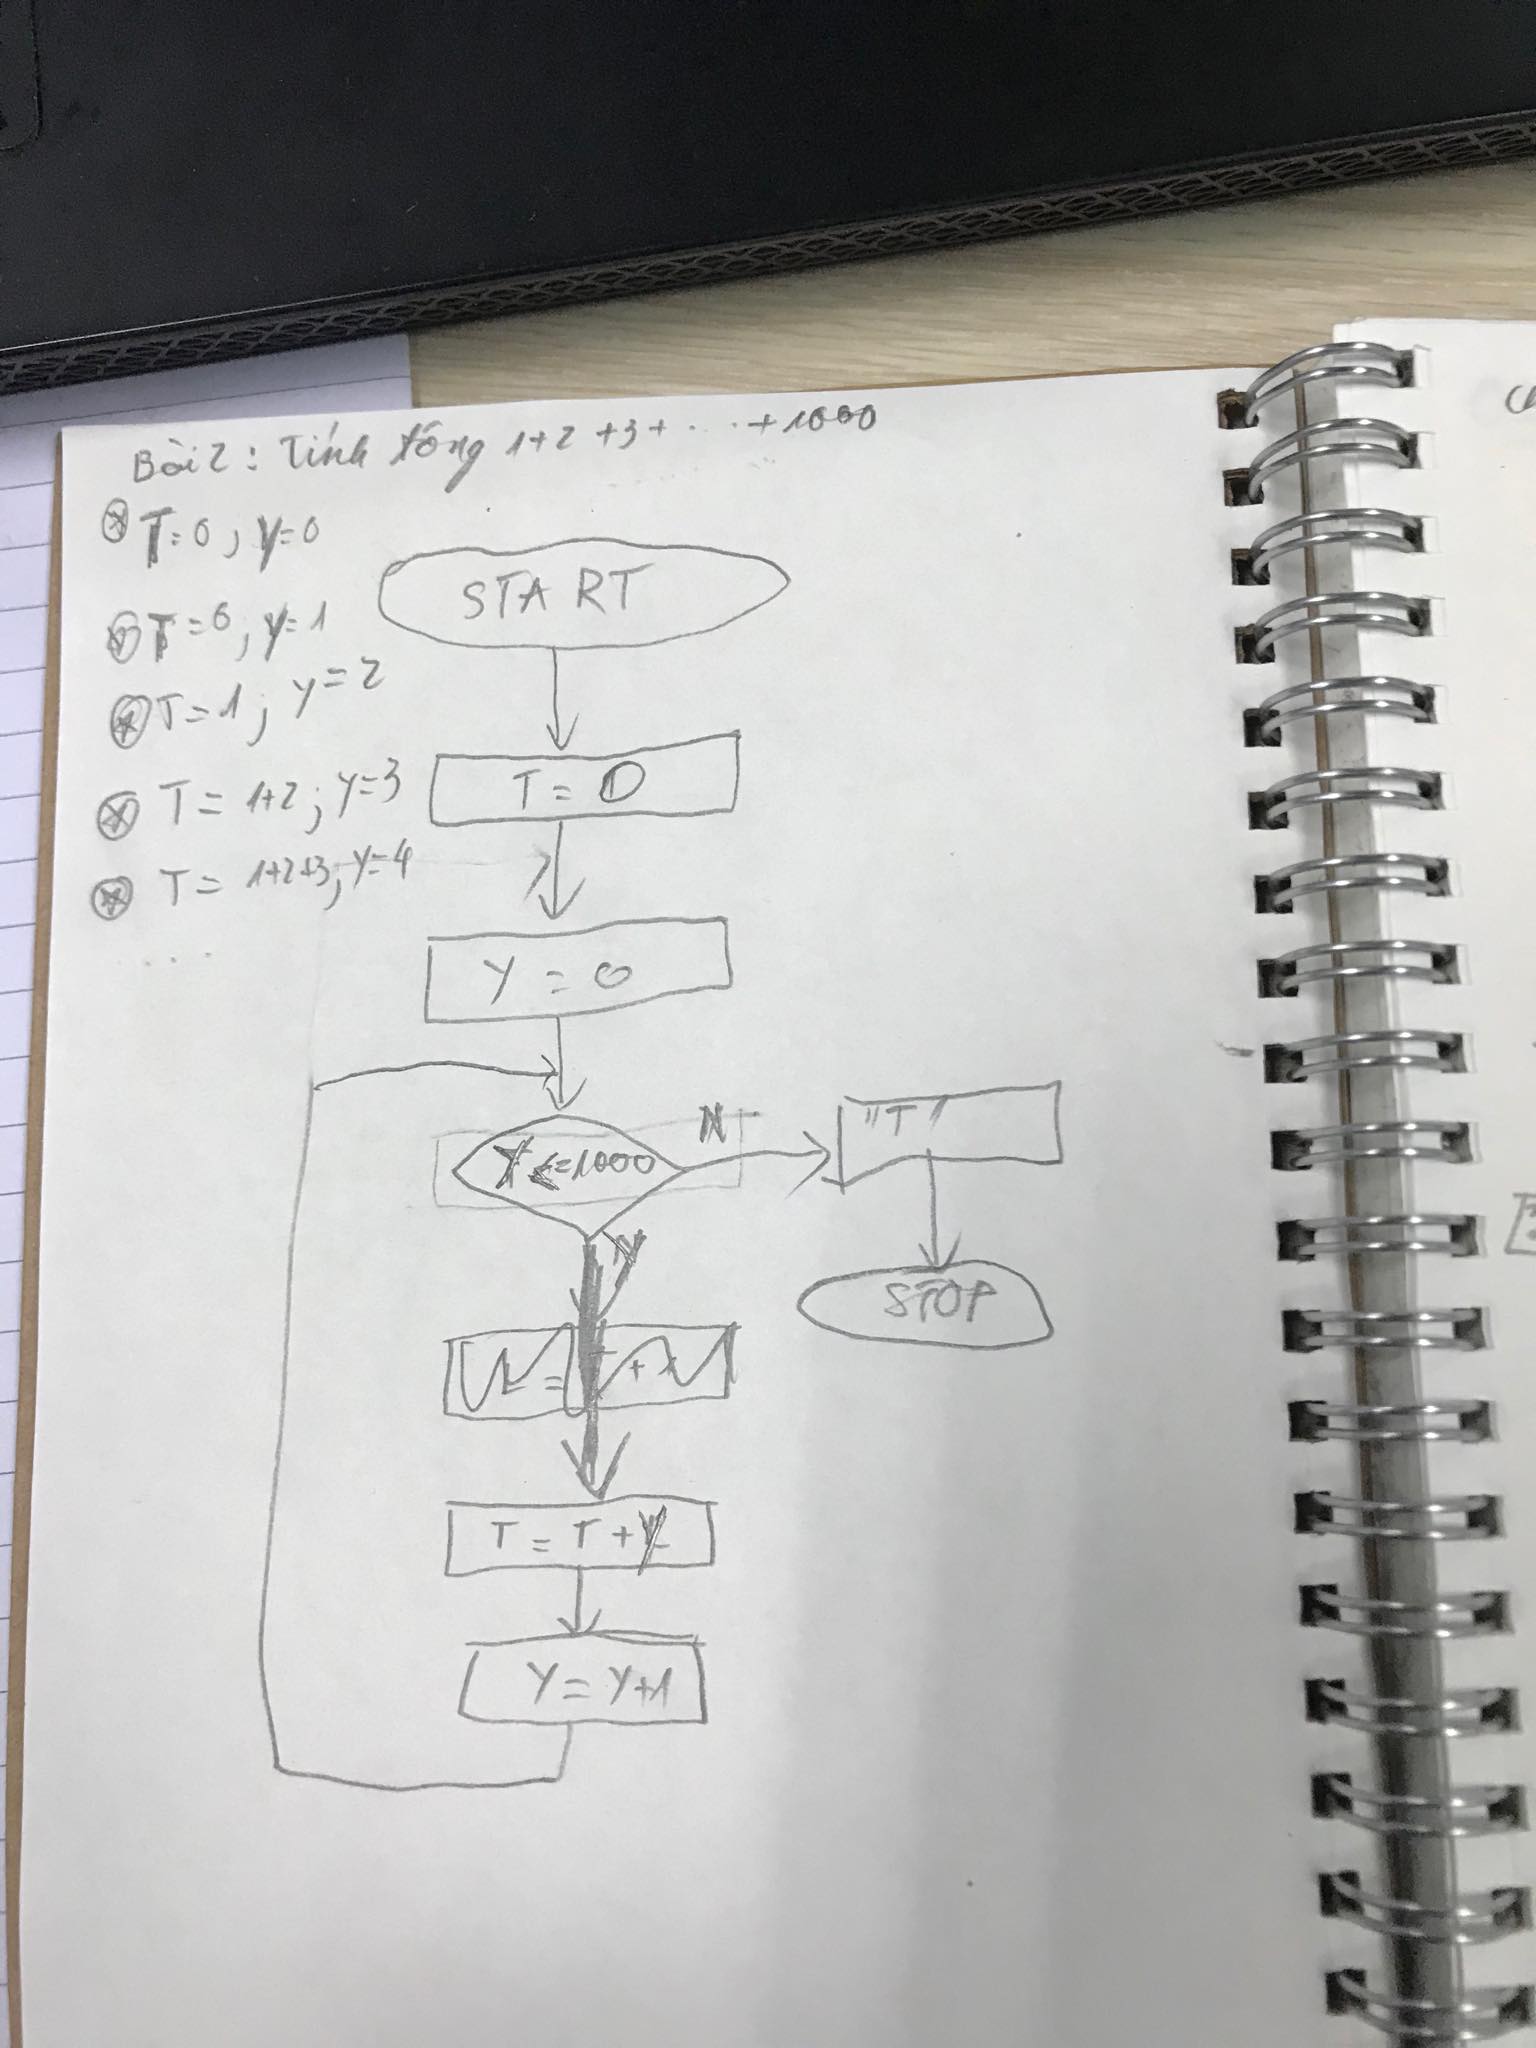 Bài 2: Tính tổng 1+2+3+...+1000
T=0; y=0
T=0; y=1
T=1; y=2
T=1+2; y=3
T=1+2+3; y=4
....
START
T=0
Y=0
Y<=1000
N
"T"
STOP
Y
T=T+Y
Y=Y+1